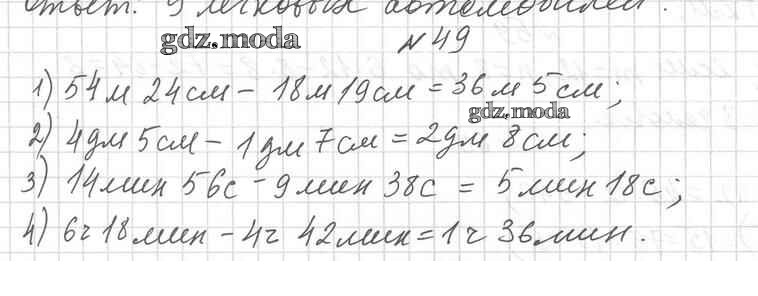 Ответ: 9 легковых автомобилей.
gdz.moda
№ 49
1) 54 м 24 см - 18 м 19 см = 36 м 5 см;
gdz.moda
2) 4 дм 5 см - 1 дм 7 см = 2 дм 8 см;
3) 14 мин 56 с - 9 мин 38 с = 5 мин 18 с;
4) 6 ч 18 мин - 4 ч 42 мин = 1 ч 36 мин.